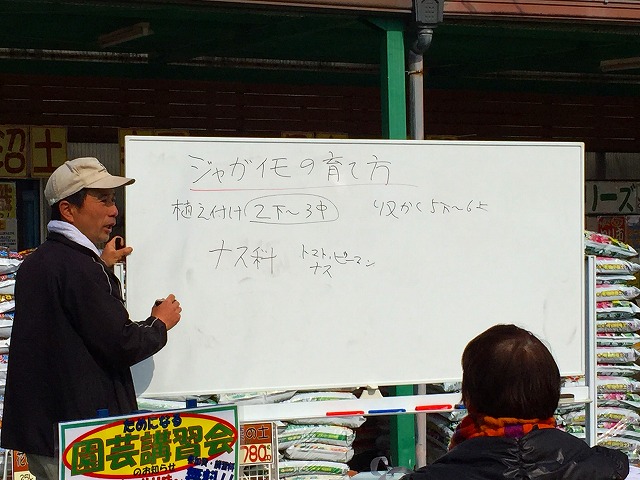 ジャガイモの育て方
植え付け 2下〜3中 収かく5下〜6上
ナス科 トマト、ピーマン
ナス
沼土
リーズ
ためになる
園芸講習会
のお知らせ
の土
780